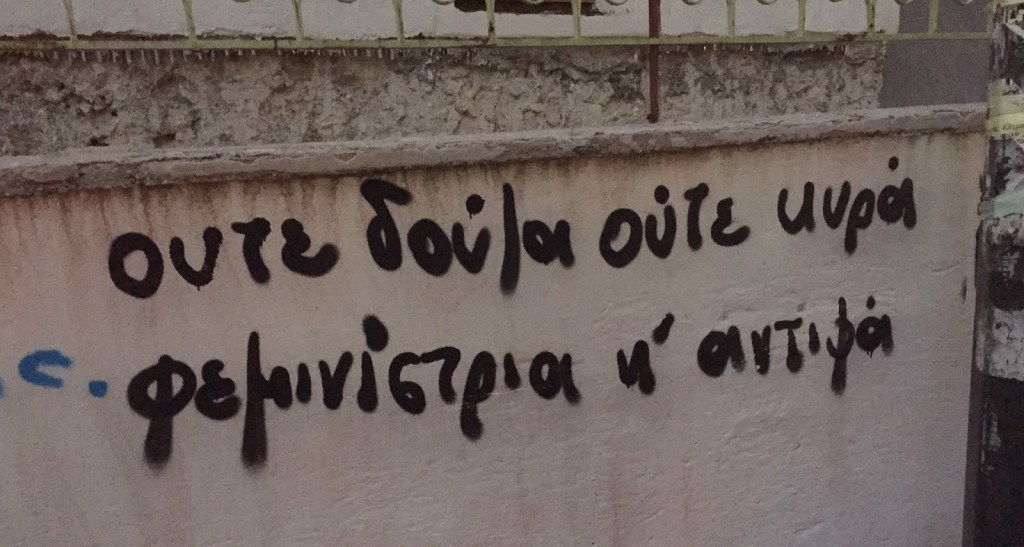 ουτε δούλα ούτε κυρά
φεμινίστρια κ' αντιφά